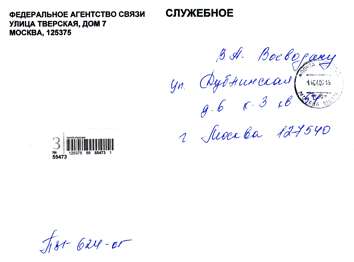 ФЕДЕРАЛЬНОЕ АГЕНТСТВО СВЯЗИ
УЛИЦА ТВЕРСКАЯ, ДОМ 7
МОСКВА, 125375
СЛУЖЕБНОЕ
В.А. Воеводину
ул. Дубнинская
д. 6 к. 3 кв
г Москва 127540
З
№
55473
125375 55473 1
624-ог